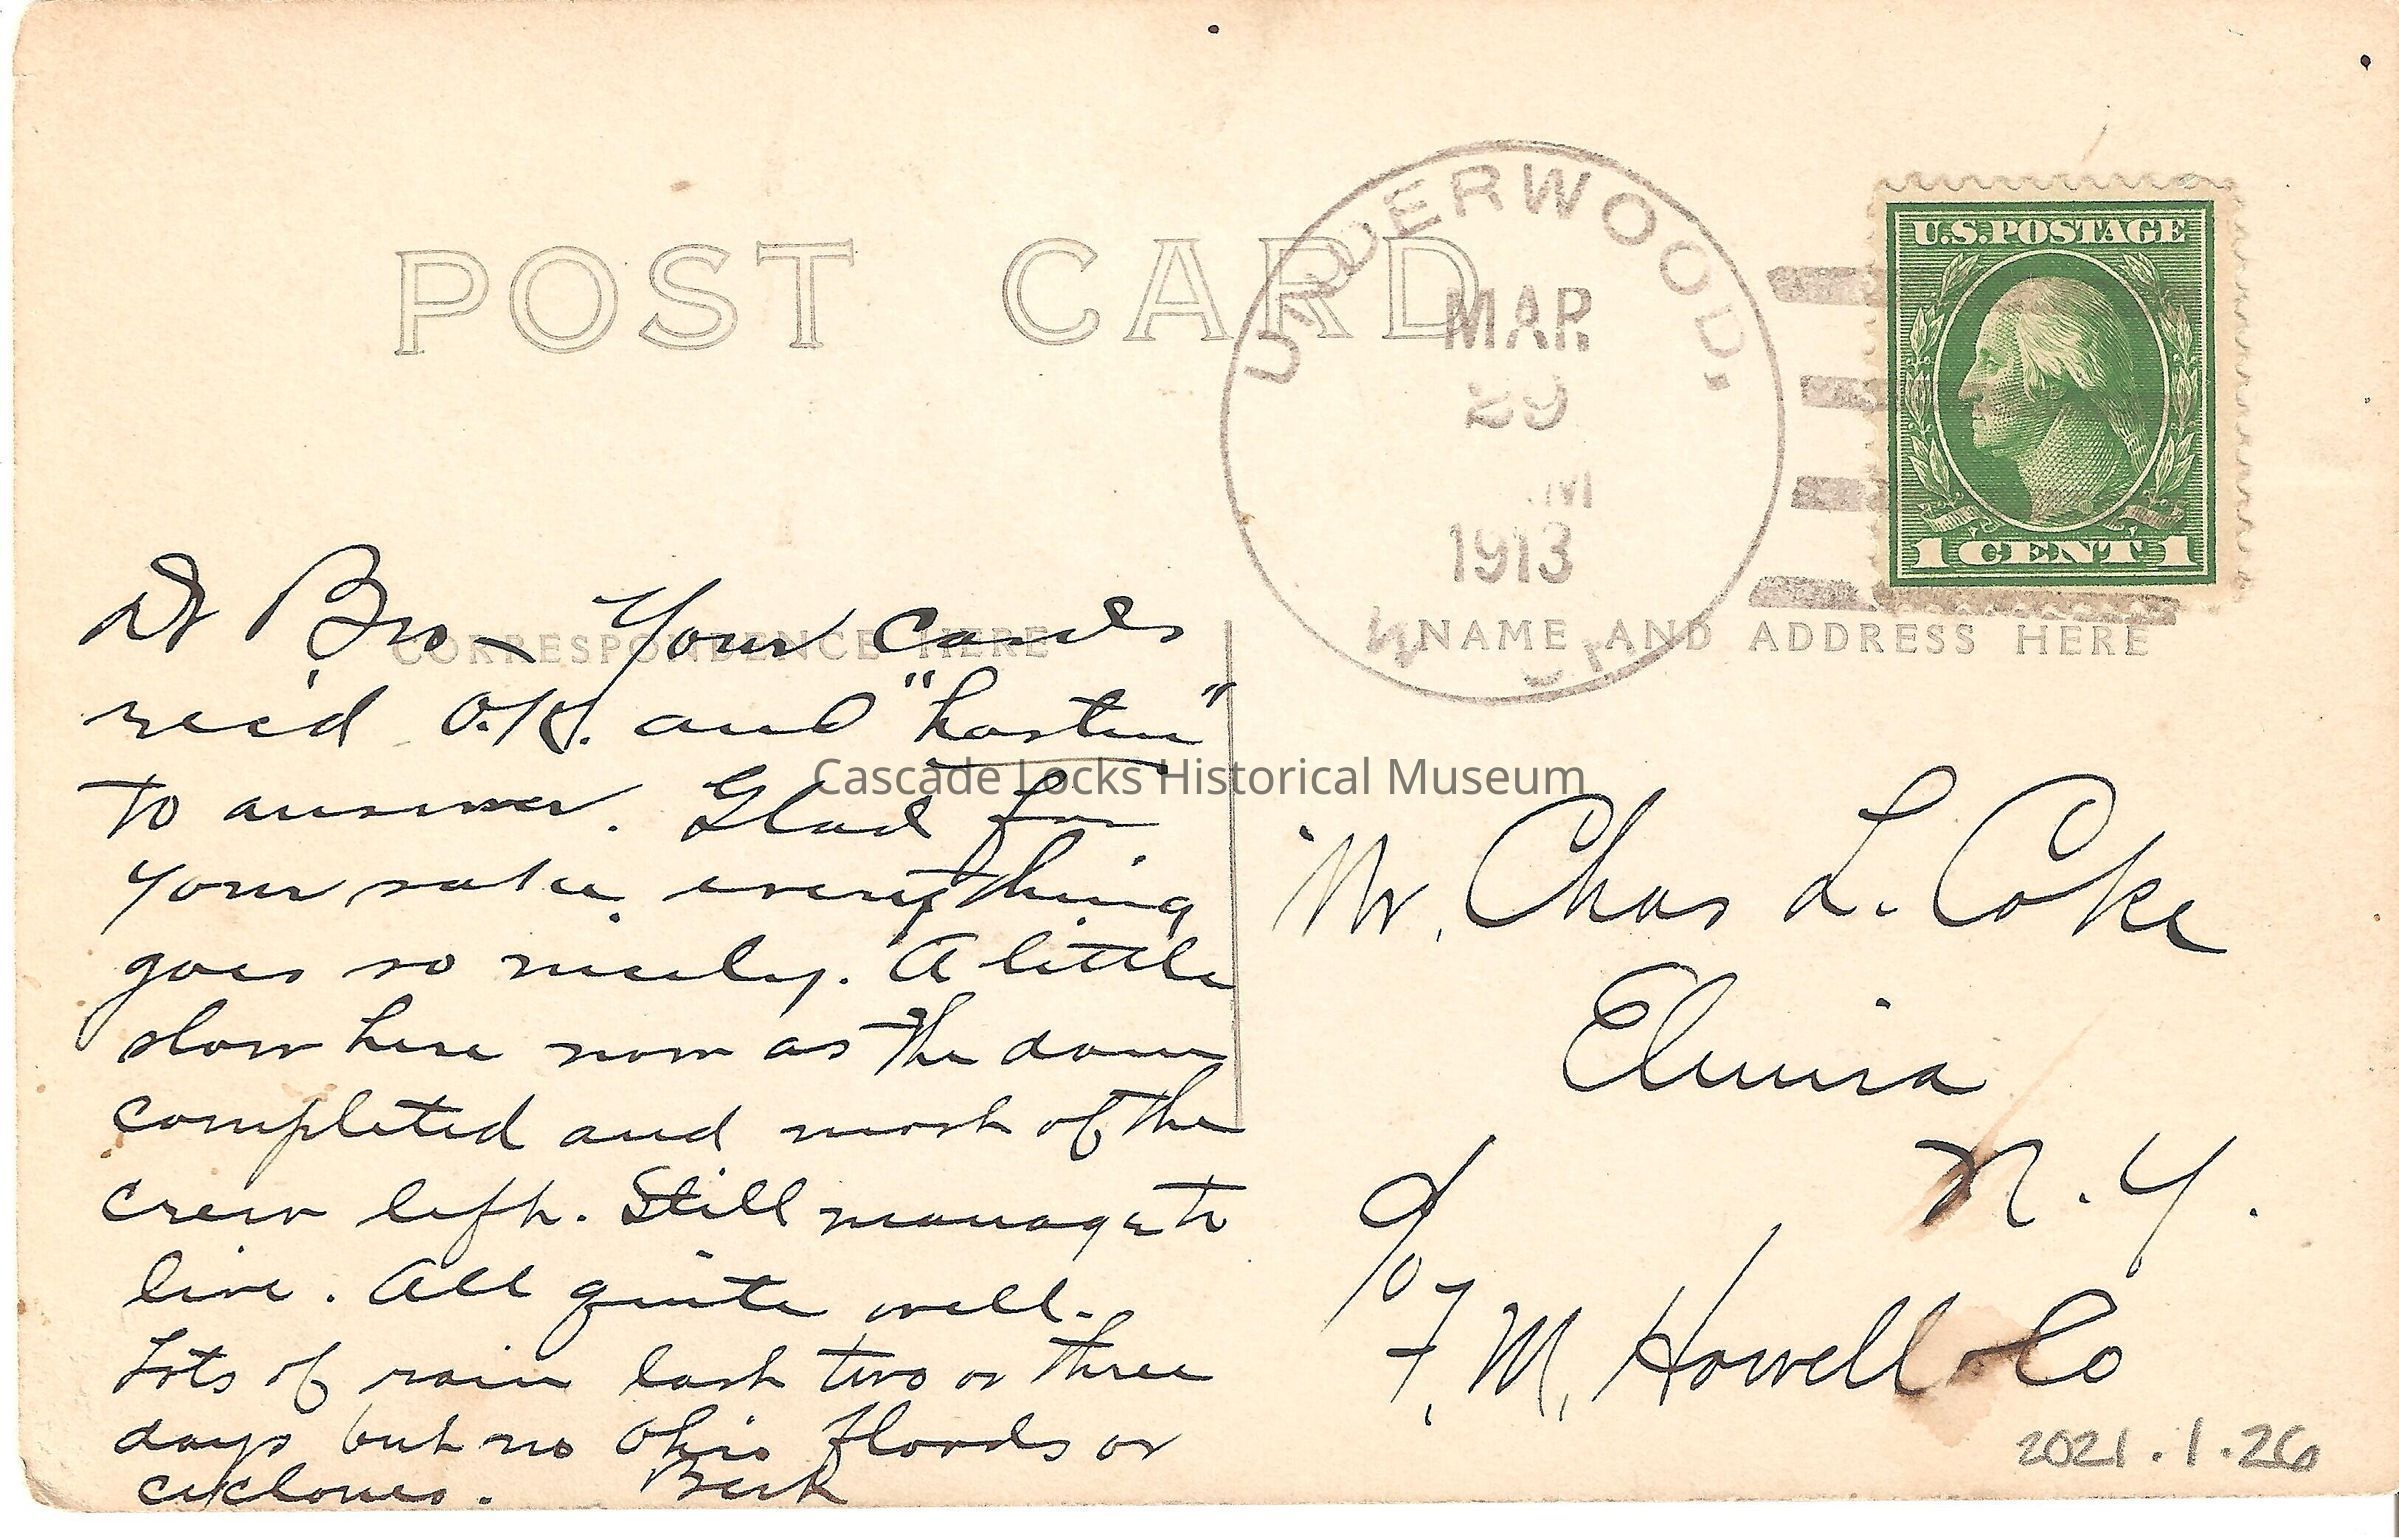 POST CARD
UNDERWOOD,
MAR
29
M
1913
W
U.S. POSTAGE
1 CENT 1
CORRESPONDENCE HERE
NAME AND ADDRESS HERE
Dr Bro - Your cards
rec'd O.K. and "hasten"
to answer. Glad for
your sake everything
goes so nicely. A little
slow here now as the dam
completed and most of the
crew left. Still manage to
live. All quite well.
Lots of rain last two or three
days but no Ohio floods or
cyclones. Bert
Cascade Locks Historical Museum
Mr. Chas L. Coke
Elmira
N.Y.
c/o
F. M. Howell & Co
2021.1.26